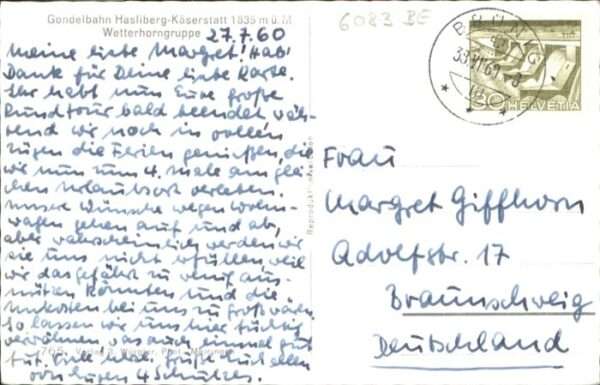 Gondelbahn Hasliberg-Käserstatt 1835 m ü. M
Wetterhorngruppe
27.7.60
Meine liebe Margret! Hab'
Dank für Deine liebe Karte.
Ihr habt nun Eure große
Rundtour bald beendet wäh-
rend wir noch in vollen
Zügen die Ferien genießen, die
wir nun zum 4. male am glei-
chen Urlaubsort verleben.
Unsere Wünsche wegen Wohn-
wagen gehen auf und ab,
aber wahrscheinlich werden wir
sie uns nicht erfüllen weil
wir das Gefährt zu wenig aus-
nützen könnten und die
Unkosten bei uns zu groß wären.
So lassen wir uns hier tüchtig
verwöhnen, was auch einmal gut
tut. Euch und Grüße Euch allen
von Eugen 4 Schultzes.
6083 BE
BRÜNIG
30 HELVETIA
Frau
Margret Giffhorn
Adolfstr. 17
Braunschweig
Deutschland